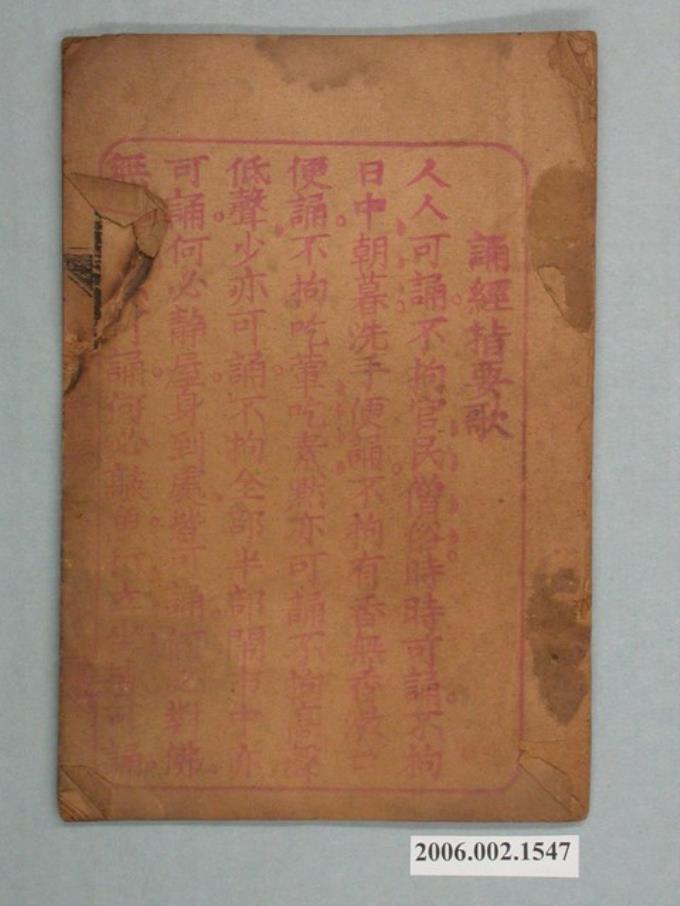 誦經指要歌
人人可誦。不拘官民僧俗。時時可誦。不拘
日中朝暮洗手便誦。不拘有香無香漱口
便誦。不拘吃葷吃素。默亦可誦不拘高聲
低聲。少亦可誦。不拘全部半部。鬧市中亦
可誦。何必靜屋。身到處皆可誦。何必對佛。
無 可誦。何必敲 可誦。
2006.002.1547